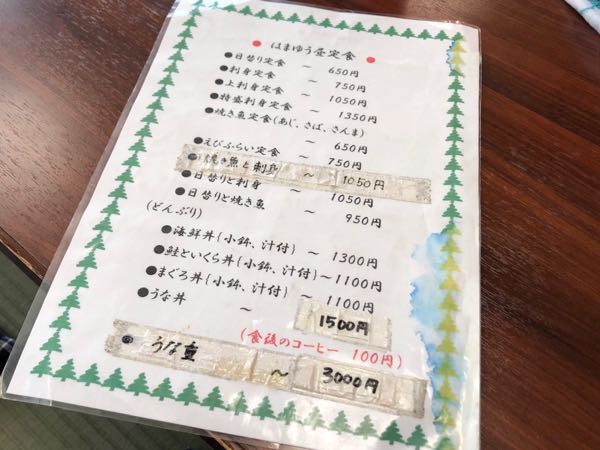 はまゆう昼定食
●日替り定食 ～ 650円
●刺身定食 ～ 750円
●上刺身定食 ～ 1050円
●特盛刺身定食 ～ 1350円
●焼き魚定食(あじ、さば、さんま)
～ 650円
●えびふらい定食 ～ 750円
●焼き魚と刺身 ～ 1050円
●日替りと刺身 ～ 1050円
●日替りと焼き魚 ～ 950円
(どんぶり)
●海鮮丼(小鉢、汁付) ～ 1300円
●鮭といくら丼(小鉢、汁付)～1100円
●まぐろ丼(小鉢、汁付) ～ 1100円
●うな丼 ～ 1500円
(食後のコーヒー 100円)
● うな重 ～ 3000円